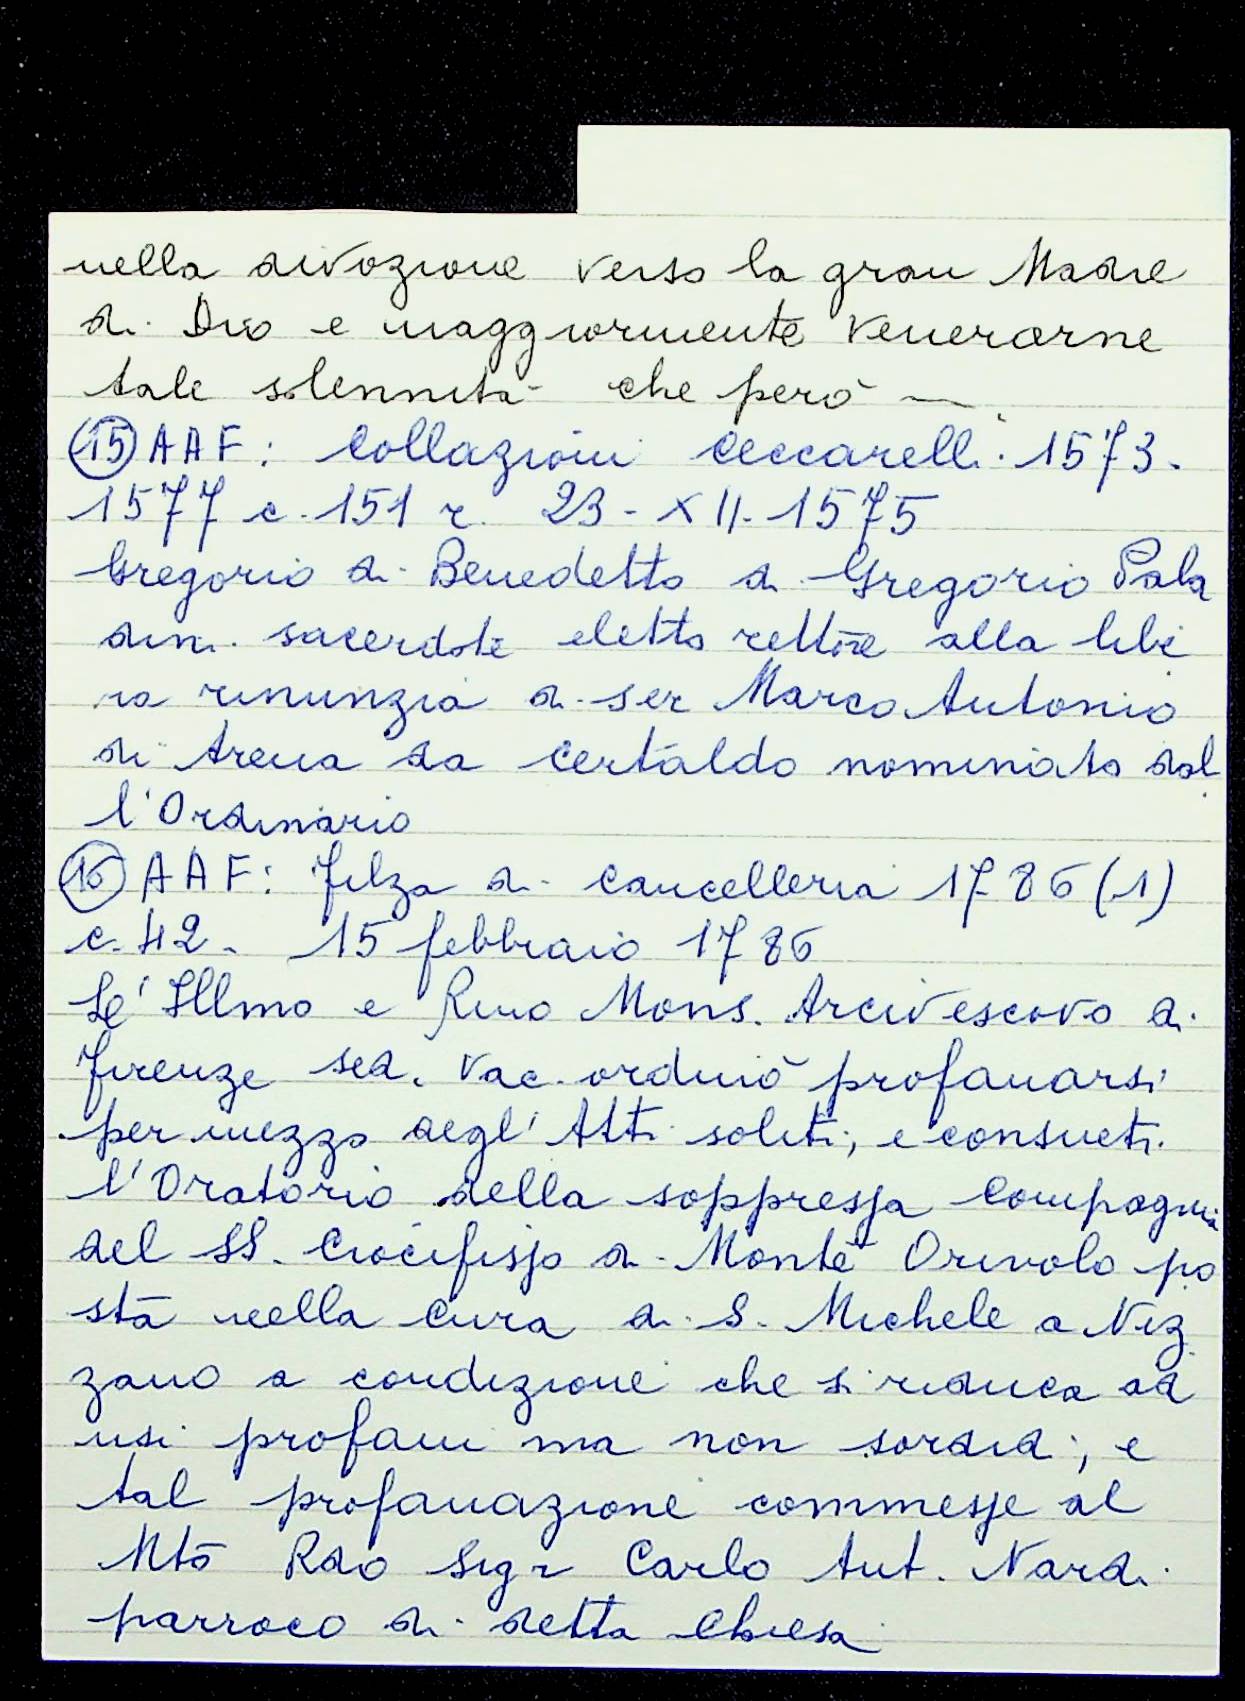 nella divozione verso la gran Madre
di Dio e maggiormente venerarne
tale solennità che però —.
(15) AAF: Collazioni Ceccarelli 1573-
1577 c. 151 r. 23-XII-1575
Gregorio di Benedetto di Gregorio Pala
dini sacerdote eletto rettore alla libe
ra rinunzia di ser Marco Antonio
di Arena da Certaldo nominato dal
l'Ordinario
(16) AAF: Filza di cancelleria 1786 (1)
c. 42 - 15 febbraio 1786
Le' Illmo e Rmo Mons. Arcivescovo di
Firenze sed. vac. ordinò profanarsi
per mezzo degl' Atti soliti, e consueti
l'Oratorio della soppressa Compagnia
del SS. Crocifisso di Monte Orivolo po
sta nella Cura di S. Michele a Niz
zano a condizione che si riduca ad
usi profani ma non sordidi, e
tal profanazione commesse al
Mto Rdo Sigr Carlo Ant. Nardi
parroco di detta Chiesa